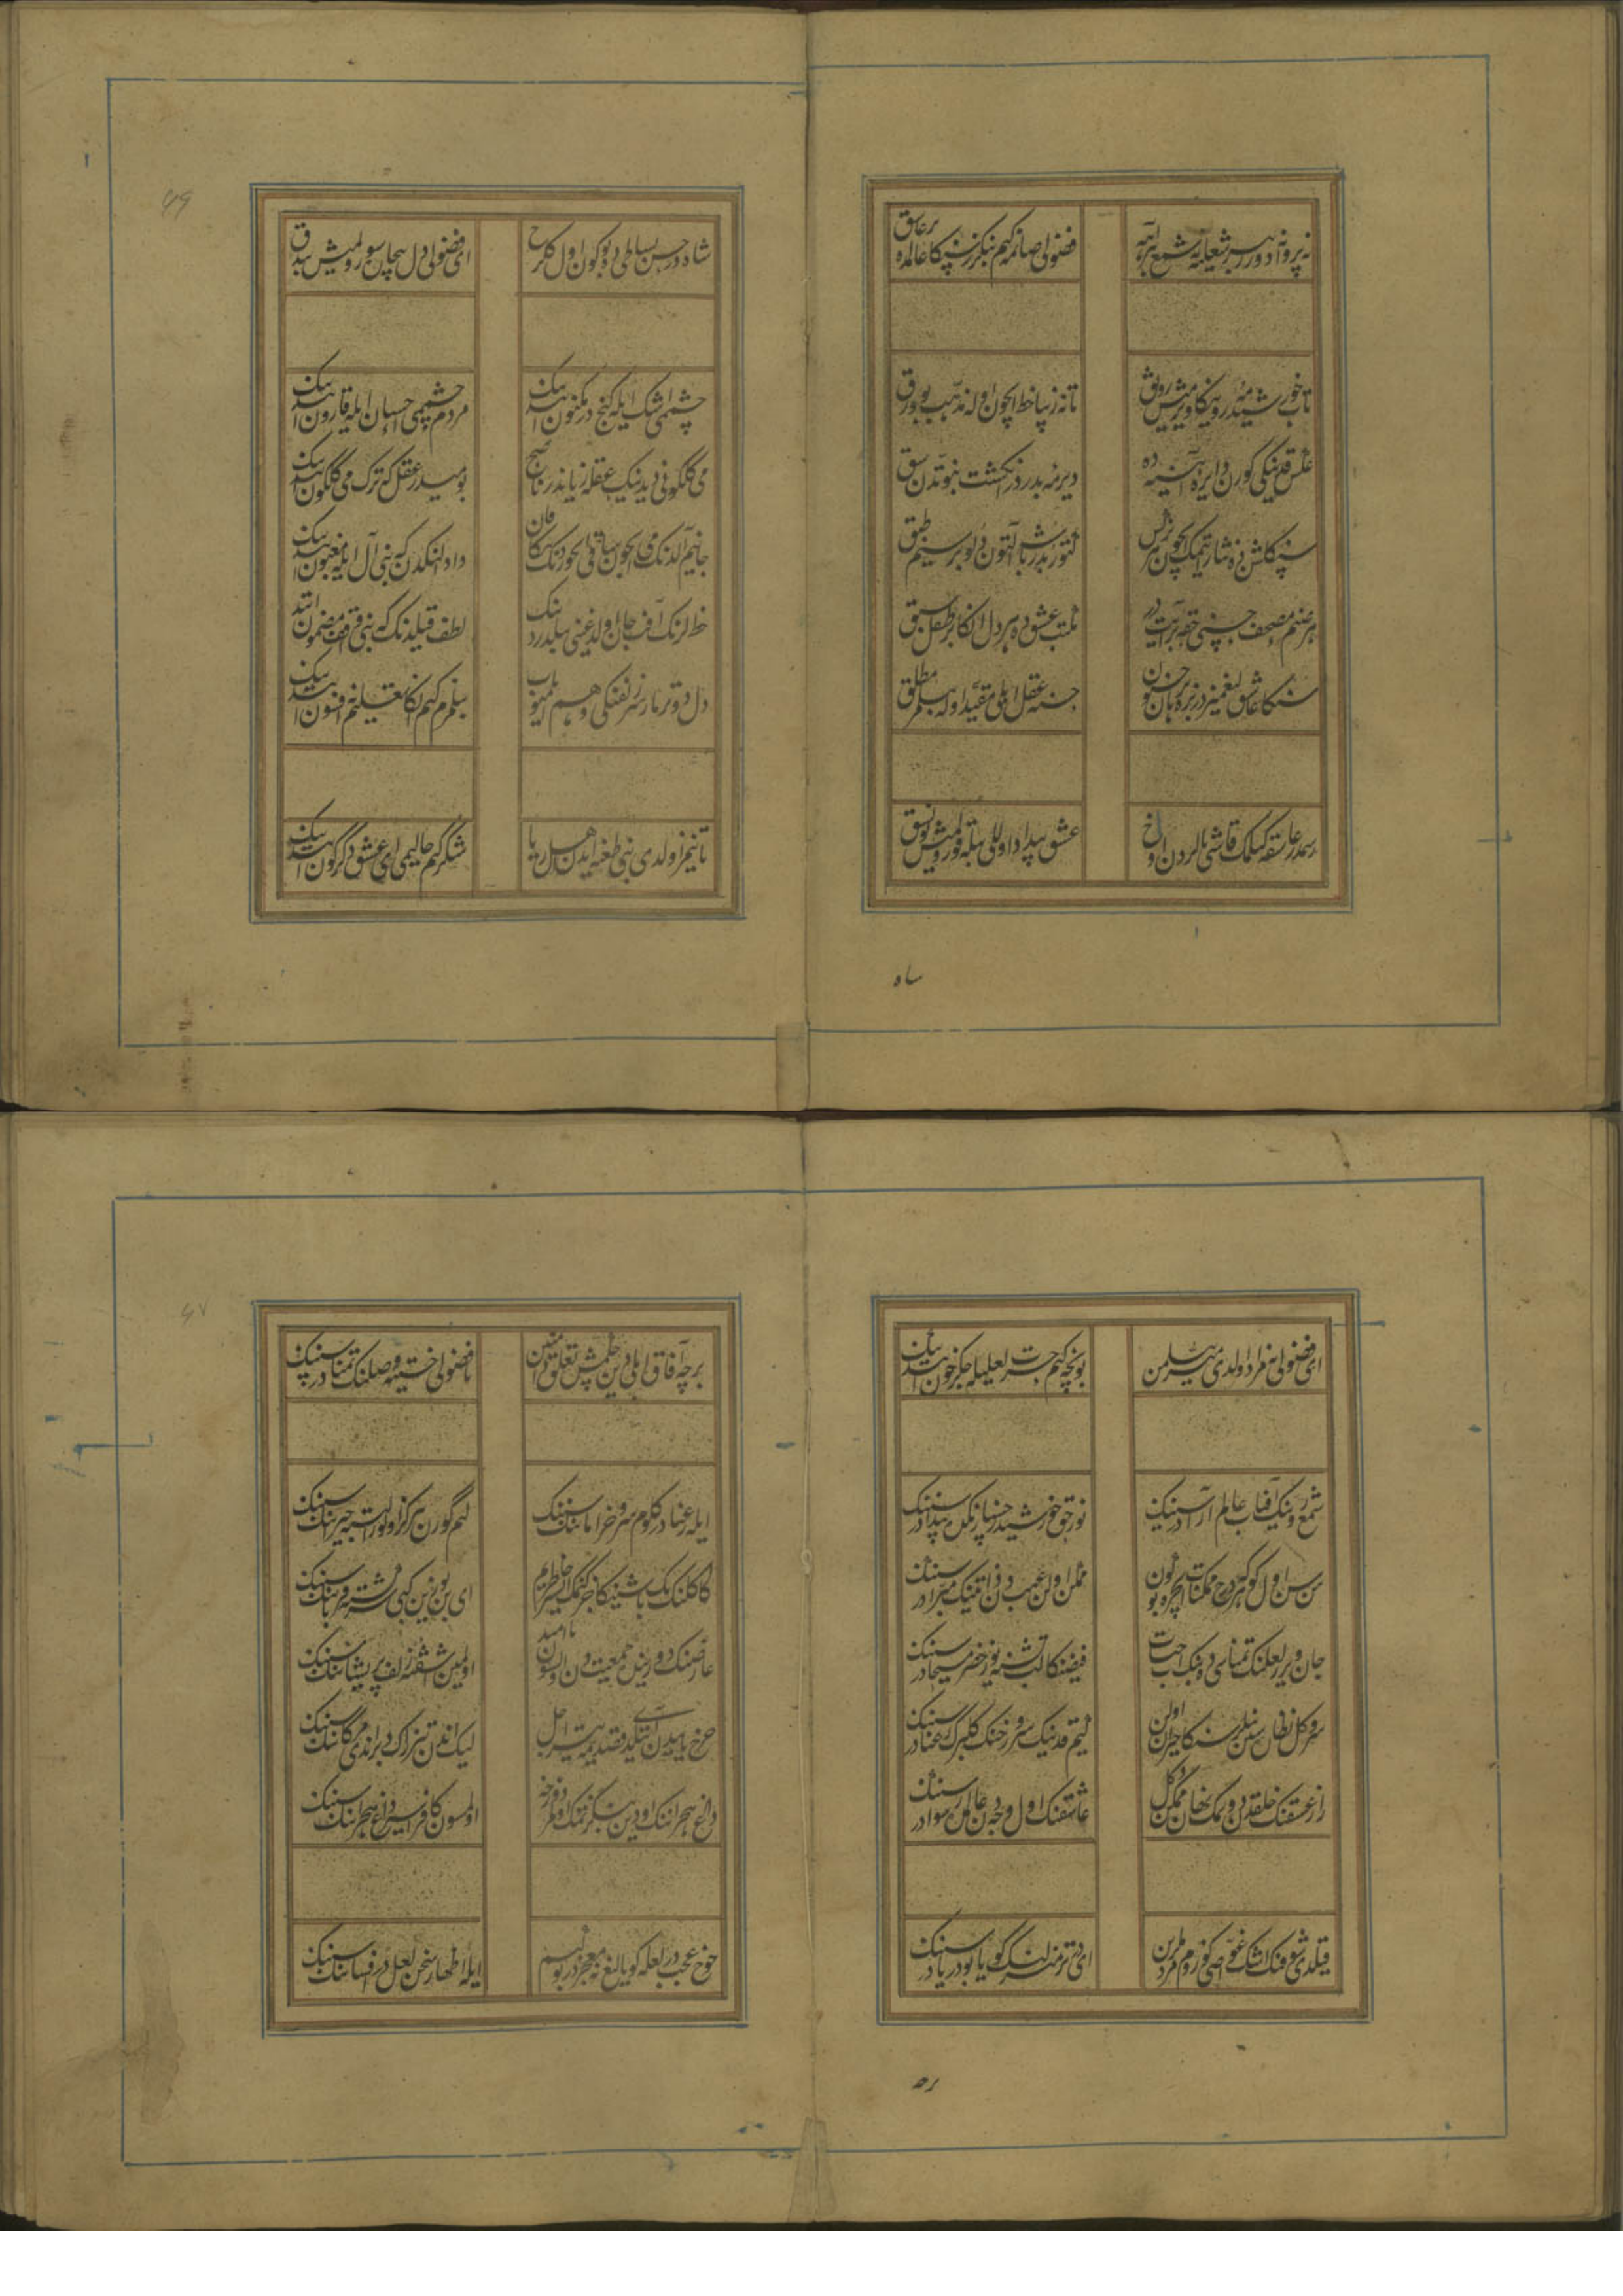 نه پروانه دویر بر شعله یه نه شمع بر آهه
فضولی صانمه کیم بنکزر سنکا عالمده بر عاشق
تاب خورشید مه رویکا ویرمیش رونق
تا نه زیبا خط ایچون اوله مذهب بو ورق
عکس قدینکی کورن دایره آیینه ده
دیر مه بدردر انکشت نبوتدن شق
سنکا کلشنده نثار ایتمک ایچون نرکس
کتورر باش التون دولو بر سیم طبق
هر صنم مصحف حسنی خط بر آیتدر
مکتب عشقده هر دل انکا بر طفل سبق
سنکا عاشق لیغمیزدر بزه برهان جنون
حسنه عقل اهلی مقید اوله بیلمز مطلق
رسمدر عاشقه کیلمک قاشی یالردن اوخ
عشق پیدا اولالی بیله قورولمیش بو نسق
شاه
شاهدر حسن بساطی ده بو کون اول کلرخ
ای فضولی دل بیجان سورولمیش بیدق
۶۶
چشمی اشک ایله کنج در مکنون ایتدنک
مردم چشمی احسان ایله قارون ایتدنک
می کلکونی دیدینک عقله زیاندر ناصح
بو میدر عقل که ترک می کلکون ایتدنک
جانیم آلدنک می ایچون ساقی ایچوردنک منکا قان
داد النکدن که بنی آل ایله مغبون ایتدنک
خط لرنک آفت جان اولدیغنی بیلدردنک
لطف قیلدنک که بنی واقف مضمون ایتدنک
دل دوتر مار سر زلفنکی وهم ایتمیوب
بیلمزم کیم انکا تعلیم نه افسون ایتدنک
تانیمز اولدی بنی طعنه ایدن اهل ریا
شکر کیم حالیمی ای عشق دکرکون ایتدنک
ای فضولی نمز اولدی میسر من
بونجه کیم حسرت لعلیله جکر خون ایتدنک
شمع رویینک آفتاب عالم آرا در سنینک
نور حق خورشید رخسارینکده پیدا در سنینک
سن سن اول کوهر که درج ممکنات ایچره بو کون
ممکن اولن عیب دن ذاتینک مبرا در سنینک
جان ویرر لعلنک تمناسی ده بنک آب حیات
فیضنکا لب تشنه یوز خضر و مسیحا در سنینک
سرو کل نظاره سین نیلر سنکا حیران اولن
کیم قدینک سرو و رخنک کلبرک رعنا در سنینک
راز عشقنک خلقدن دوتمک نهان ممکن دکل
عاشقنک اول وجه دن عالمده رسوا در سنینک
قیلدی شوقنک اشک غواصی کوزوم مردملرین
ای در تر منزلنک کویا بو دریا در سنینک
بر
بر جه آفاق اهلی دین چکمیش تعلق دامنین
تا فضولی خسته وصلنک تمنادر سنینک
۶۷
ایله رعنا در کلوم سرو خرامانینک سنینک
کیم کورن بر کز اولور البته حیرانینک سنینک
کاکلنک تک باشینکا چزکنمک ایستر خاطریم
ای بن یوز بن کبی سرکشته قربانینک سنینک
عارضنک دورینده جمعیت دن اولسون نا امید
اولمین آشفته زلف پریشانینک سنینک
چرخ یایندن کلدی قصدیمه تیر اجل
لیک اندن تیزراک دبراندی مژکانینک سنینک
داغ هجرانینک اودین بنکزتمک اولمز دوزخه
اولمسون کافر اسیر داغ هجرانینک سنینک
خوخ عجب در لعله کویالیغ نه معجزدر بو کیم
ایلر اظهار سخن لعل در افشانینک سنینک